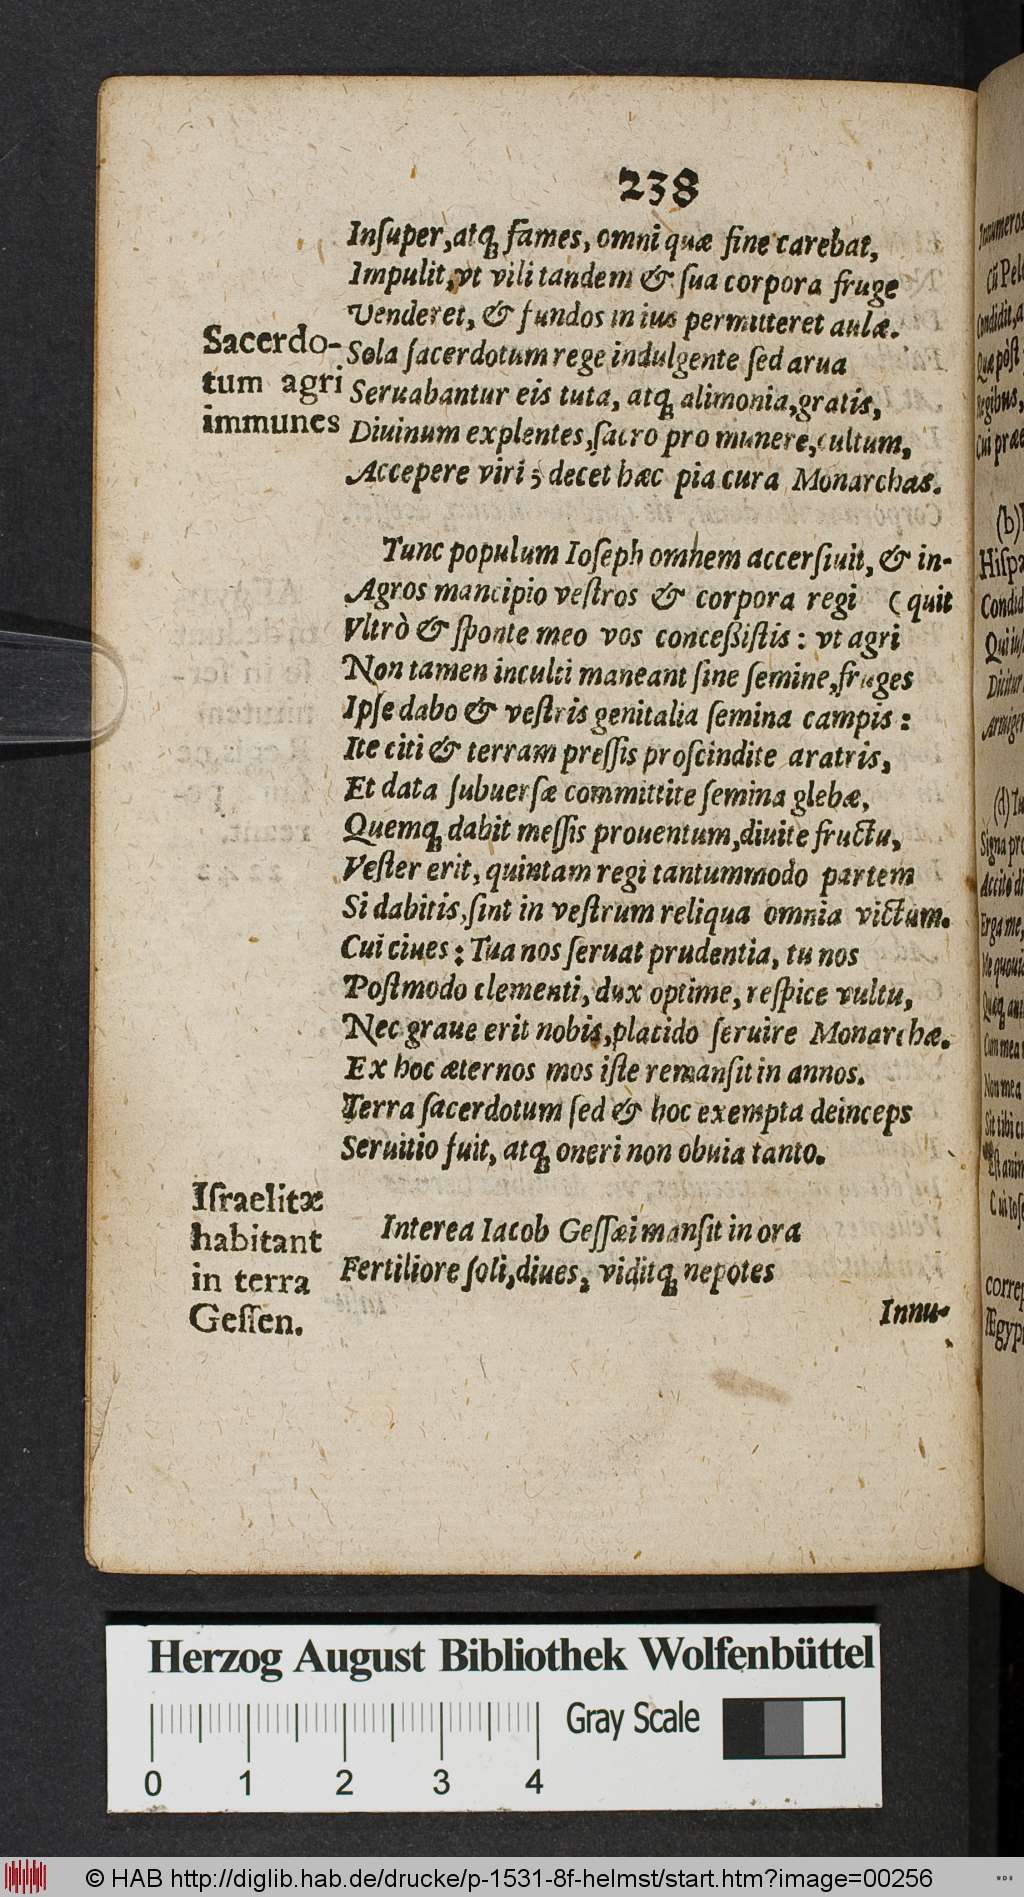 238
Inſuper, atq́; fames, omni quæ fine carebat,
Impulit, vt vili tandem & ſua corpora fruge
Venderet, & fundos in ius permitteret aulæ.
Sacerdo-
tum agri
immunes
Sola ſacerdotum rege indulgente ſed arua
Seruabantur eis tuta, atq́; alimonia, gratis,
Diuinum explentes, ſacro pro munere, cultum,
Accepere viri; decet hæc pia cura Monarchas.
Tunc populum Ioſeph omnem accerſiuit, & in-
Agros mancipio veſtros & corpora regi (quit
Vltrò & ſponte meo vos conceßiſtis: vt agri
Non tamen inculti maneant ſine ſemine, fruges
Ipſe dabo & veſtris genitalia ſemina campis:
Ite citi & terram preſſis proſcindite aratris,
Et data ſubuerſæ committite ſemina glebæ,
Quemq́; dabit meſſis prouentum, diuite fructu,
Veſter erit, quintam regi tantummodo partem
Si dabitis, ſint in veſtrum reliqua omnia victum.
Cui ciues: Tua nos ſeruat prudentia, tu nos
Poſtmodo clementi, dux optime, reſpice vultu,
Nec graue erit nobis, placido ſeruire Monarchæ.
Ex hoc æternos mos iſte remanſit in annos.
Terra ſacerdotum ſed & hoc exempta deinceps
Seruitio fuit, atq́; oneri non obuia tanto.
Iſraelitæ
habitant
in terra
Geſſen.
Interea Iacob Geſſæi manſit in ora
Fertiliore ſoli, diues, viditq́; nepotes
Innu-
(b)
(d)
Herzog August Bibliothek Wolfenbüttel
Gray Scale
0 1 2 3 4
© HAB http://diglib.hab.de/drucke/p-1531-8f-helmst/start.htm?image=00256